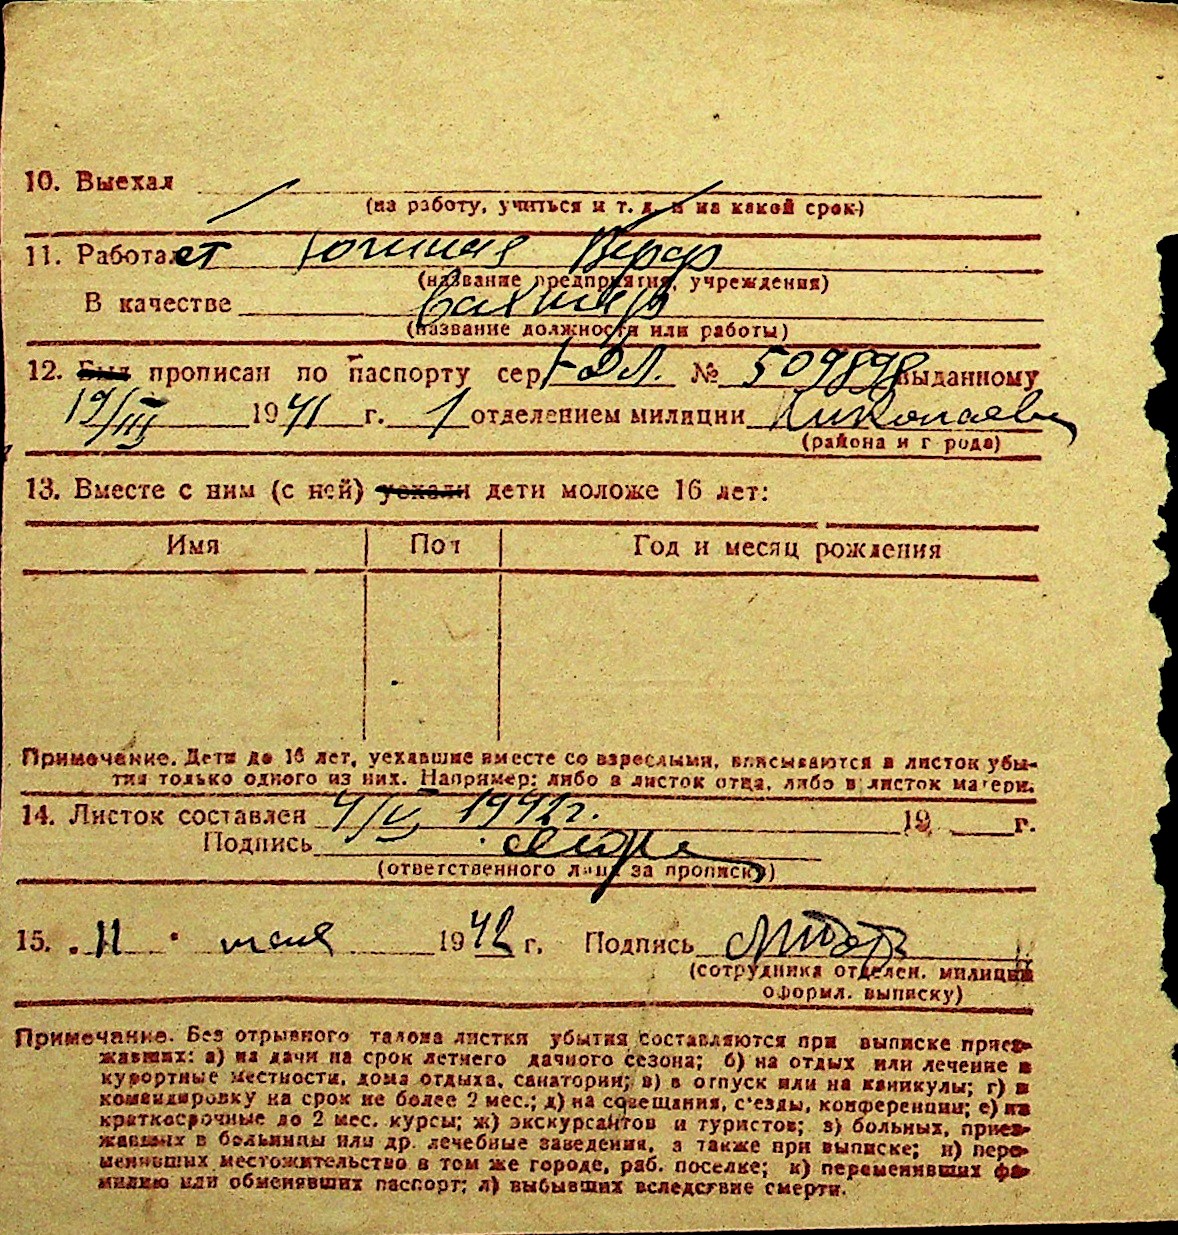 10. Выехал
(на работу, учиться и т. д. и на какой срок)
11. Работает Южная Верф
(название предприятия, учреждения)
В качестве Вахтер
(название должности или работы)
12. Был прописан по паспорту сер. I-ДЛ. № 509898 выданному
19/III 1941 г. 1 отделением милиции Николаев
(района и города)
13. Вместе с ним (с ней) уехали дети моложе 16 лет:
Имя Пол Год и месяц рождения
Примечание. Дети до 16 лет, уехавшие вместе со взрослыми, вписываются в листок убы-
тия только одного из них. Например: либо в листок отца, либо в листок матери.
14. Листок составлен 4/V 1942г. 19 г.
Подпись
(ответственного лица за прописку)
15. „11" мая 1942 г. Подпись
(сотрудника отделен. милиции
оформл. выписку)
Примечание. Без отрывного талона листки убытия составляются при выписке приез-
жавших: а) на дачи на срок летнего дачного сезона; б) на отдых или лечение в
курортные местности, дома отдыха, санатории; в) в отпуск или на каникулы; г) в
командировку на срок не более 2 мес.; д) на совещания, с'езды, конференции; е) на
краткосрочные до 2 мес. курсы; ж) экскурсантов и туристов; з) больных, приез-
жавших в больницы или др. лечебные заведения, а также при выписке; и) пере-
менивших местожительство в том же городе, раб. поселке; к) переменивших фа-
милию или обменявших паспорт; л) выбывших вследствие смерти.